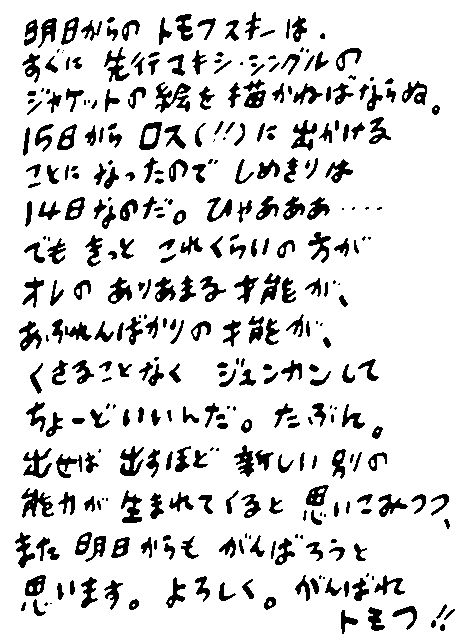 明日からの トモフスキーは、
すぐに 先行マキシ・シングルの
ジャケットの絵を描かねばならぬ。
15日から ロス(!!)に 出かける
ことに なったので しめきりは
14日なのだ。ひゃあああ‥‥
でも きっと これくらいの 方が
オレの ありあまる才能が、
あふれんばかりの才能が、
くさることなく ジュンカンして
ちょーどいいんだ。たぶん。
出せば 出すほど 新しい 別の
能力が 生まれてくると 思いこみつつ、
また 明日からも がんばろうと
思います。よろしく。がんばれ
トモフ!!